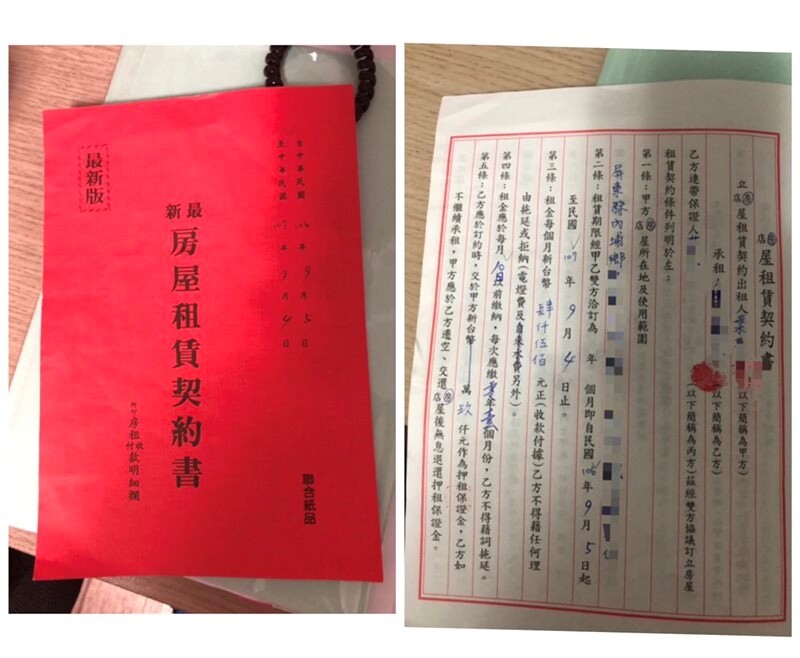 最新版
自中華民國106年9月5日
至中華民國107年9月4日
最新
房屋租賃契約書
附印房租收付款明細欄
聯合紙品
房店屋租賃契約書
立房店屋租賃契約出租人葉 (以下簡稱為甲方)
承租人 (以下簡稱為乙方)
乙方連帶保證人 (以下簡稱為丙方)茲經雙方協議訂立房屋
租賃契約條件列明於左:
第一條:甲方房店屋所在地及使用範圍
屏東縣內埔鄉
第二條:租賃期限經甲乙雙方洽訂為 年 個月即自民國106年9月5日起
至民國107年9月4日止。
第三條:租金每個月新台幣肆仟伍佰元正(收款付據)乙方不得藉任何理
由拖延或拒納(電燈費及自來水費另外)。
第四條:租金應於每月10日以前繳納,每次應繳壹個月份,乙方不得藉詞拖延。
第五條:乙方應於訂約時,交於甲方新台幣 萬玖仟元作為押租保證金,乙方如
不繼續承租,甲方應於乙方遷空、交還房店屋後無息退還押租保證金。